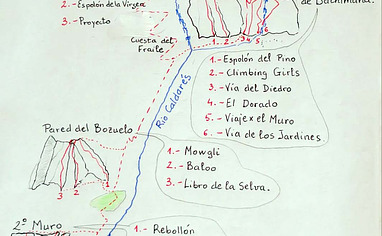 2.- Espolón de la Virgen
3.- Proyecto
Cuesta del
Fraile
de Bachimaña.
1 2 3 4 5 6
1.- Espolón del Pino
2.- Climbing Girls
3.- Vía del Diedro
4.- El Dorado
5.- Viaje x el Muro
6.- Vía de los Jardines.
Río Caldarés
Pared del Bozuelo
3 2 1
1.- Mowgli
2.- Baloo
3.- Libro de la Selva.
2º Muro
1.- Rebollón